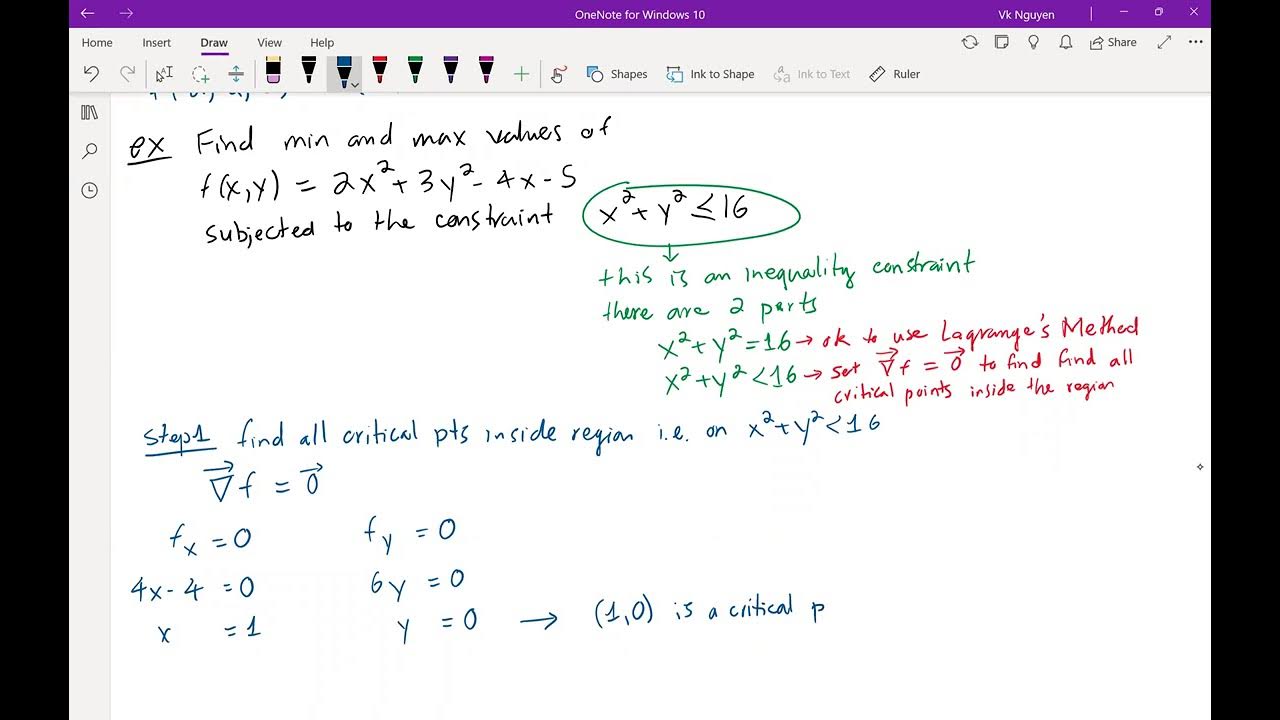 OneNote for Windows 10
Vk Nguyen
Home Insert Draw View Help
Share
Shapes
Ink to Shape
Ink to Text
Ruler
ex Find min and max values of
f(x,y) = 2x² + 3y² - 4x - 5
subjected to the constraint x² + y² ≤ 16
this is an inequality constraint
there are 2 parts
x² + y² = 16 → ok to use Lagrange's Method
x² + y² < 16 → set ∇⃗f = 0⃗ to find find all
critical points inside the region
step1 find all critical pts inside region i.e. on x² + y² < 16
∇⃗f = 0⃗
fₓ = 0 f_y = 0
4x - 4 = 0 6y = 0
x = 1 y = 0 → (1,0) is a critical p